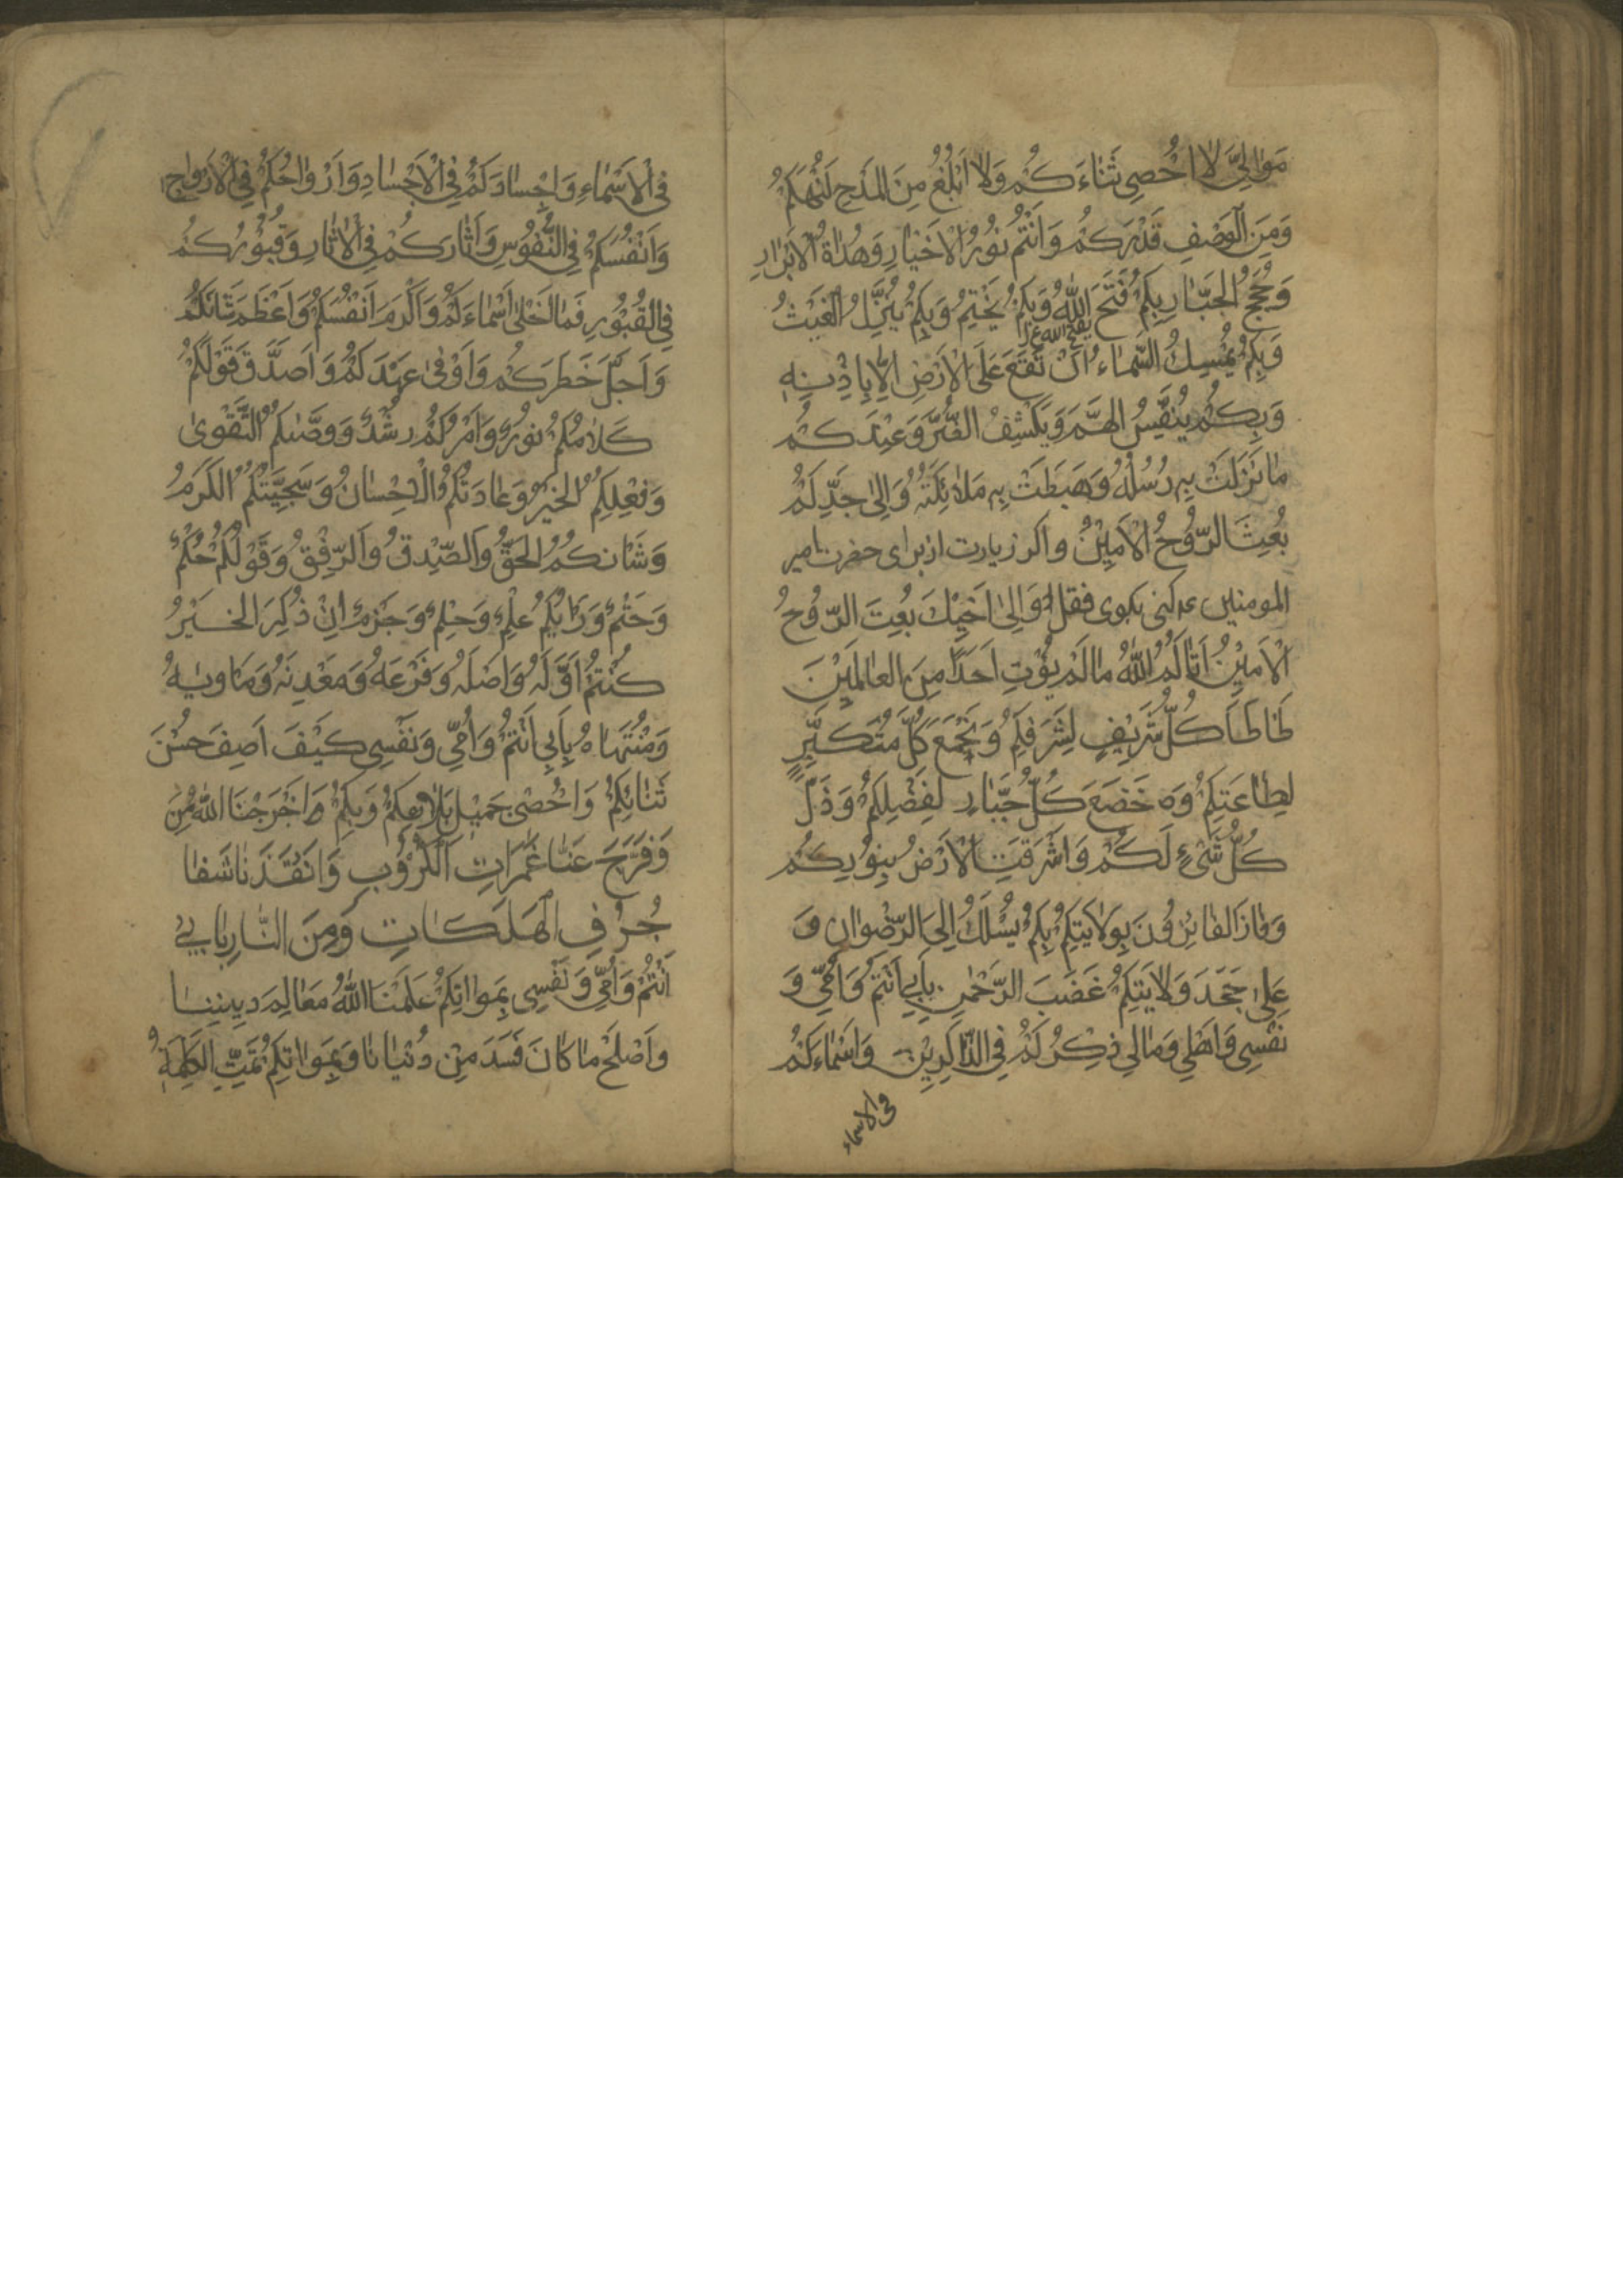 مَوٰالِيَّ لٰا اُحْصِي ثَنٰاءَكُمْ وَلٰا اَبْلُغُ مِنَ المَدْحِ كُنْهَكُمْ
وَمِنَ الْوَصْفِ قَدْرَكُمْ وَاَنْتُمْ نُورُ الْاَخْيٰارِ وَهُدٰاةُ الْاَبْرٰارِ
وَحُجَجُ الْجَبّٰارِ بِكُمْ فَتَحَ اللّٰهُ وَبِكُمْ يَخْتِمُ وَبِكُمْ يُنَزِّلُ الْغَيْثَ
وَبِكُمْ يُمْسِكُ السَّمٰاءَ اَنْ تَقَعَ عَلَى الْاَرْضِ اِلّٰا بِاِذْنِهِ
وَبِكُمْ يُنَفِّسُ الْهَمَّ وَيَكْشِفُ الضُّرَّ وَعِنْدَكُمْ
مٰا نَزَلَتْ بِهِ رُسُلُهُ وَهَبَطَتْ بِهِ مَلٰائِكَتُهُ وَاِلىٰ جَدِّكُمْ
بُعِثَ الرُّوحُ الْاَمِيْنُ واكر زيارت از براى حضرت امير
المومنين كنى بكوى فقل وَاِلىٰ اَخِيْكَ بُعِثَ الرُّوحُ
الْاَمِيْنُ اٰتٰاكُمُ اللّٰهُ مٰا لَمْ يُؤْتِ اَحَدًا مِنَ الْعٰالَمِيْنَ
طَاْطَاَ كُلُّ شَرِيْفٍ لِشَرَفِكُمْ وَبَخَعَ كُلُّ مُتَكَبِّرٍ
لِطٰاعَتِكُمْ وَ خَضَعَ كُلُّ جَبّٰارٍ لِفَضْلِكُمْ وَذَلَّ
كُلُّ شَىْءٍ لَكُمْ وَاَشْرَقَتِ الْاَرْضُ بِنُورِكُمْ
وَفٰازَ الْفٰائِزُوْنَ بِوَلٰايَتِكُمْ بِكُمْ يُسْلَكُ اِلَى الرِّضْوٰانِ وَ
عَلىٰ جَحَدَ وَلٰايَتِكُمْ غَضَبَ الرَّحْمٰنِ بِاَبِي اَنْتُمْ وَاُمِّي وَ
نَفْسِي وَاَهْلِي وَمٰالِي ذِكْرُكُمْ فِي الذّٰاكِرِيْنَ وَاَسْمٰاءُكُمْ
فى الاسماء
فِى الْاَسْمٰاءِ وَاَجْسٰادُكُمْ فِي الْاَجْسٰادِ وَاَرْوٰاحُكُمْ فِي الْاَرْوٰاحِ
وَاَنْفُسُكُمْ فِي النُّفُوْسِ وَاٰثٰارُكُمْ فِي الْاٰثٰارِ وَقُبُوْرُكُمْ
فِي الْقُبُوْرِ فَمٰا اَحْلىٰ اَسْمٰاءَكُمْ وَاَكْرَمَ اَنْفُسَكُمْ وَاَعْظَمَ شَانَكُمْ
وَاَجَلَّ خَطَرَكُمْ وَاَوْفىٰ عَهْدَكُمْ وَاَصْدَقَ قَوْلَكُمْ
كَلٰامُكُمْ نُورٌ وَاَمْرُكُمْ رُشْدٌ وَوَصّٰيكُمُ التَّقْوىٰ
وَفِعْلِكُمُ الْخَيْرُ وَعٰادَتُكُمُ الْاِحْسٰانُ وَسَجِيَّتُكُمُ الْكَرَمُ
وَشَانُكُمُ الْحَقُّ وَالصِّدْقُ وَالرِّفْقُ وَقَوْلُكُمْ حُكْمٌ
وَحَتْمٌ وَرَايُكُمْ عِلْمٌ وَحِلْمٌ وَحَزْمٌ اِنْ ذُكِرَ الْخَيْرُ
كُنْتُمْ اَوَّلَهُ وَاَصْلَهُ وَفَرْعَهُ وَمَعْدِنَهُ وَمَاْوٰيهُ
وَمُنْتَهٰاهُ بِاَبِي اَنْتُمْ وَاُمِّي وَنَفْسِي كَيْفَ اَصِفُ حُسْنَ
ثَنٰائِكُمْ وَاُحْصِي جَمِيْلَ بَلٰائِكُمْ وَبِكُمْ اَخْرَجْنَا اللّٰهُ مِنَ
وَفَرَّجَ عَنّٰا غَمَرٰاتِ الْكُرُوْبِ وَاَنْقَذَنٰا شَفٰا
جُرُفِ الْهَلَكٰاتِ وَمِنَ النّٰارِ بِاَبِي
اَنْتُمْ وَاُمِّي وَنَفْسِي بِمُوٰالٰاتِكُمْ عَلَّمَنَا اللّٰهُ مَعٰالِمَ دِينِنٰا
وَاَصْلَحَ مٰا كٰانَ فَسَدَ مِنْ دُنْيٰانٰا وَبِمُوٰالٰاتِكُمْ تَمَّتِ الْكَلِمَةُ